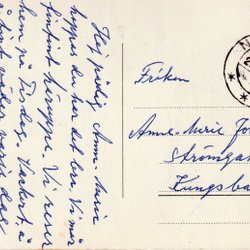 Hej på dig Anne-Marie
hoppas du har det bra. Vi mår
finfint häruppe. Vi reser
hem på Tisdag. Vackert, å
Fröken
Anne-Marie Jo
Strömga
Kungsba